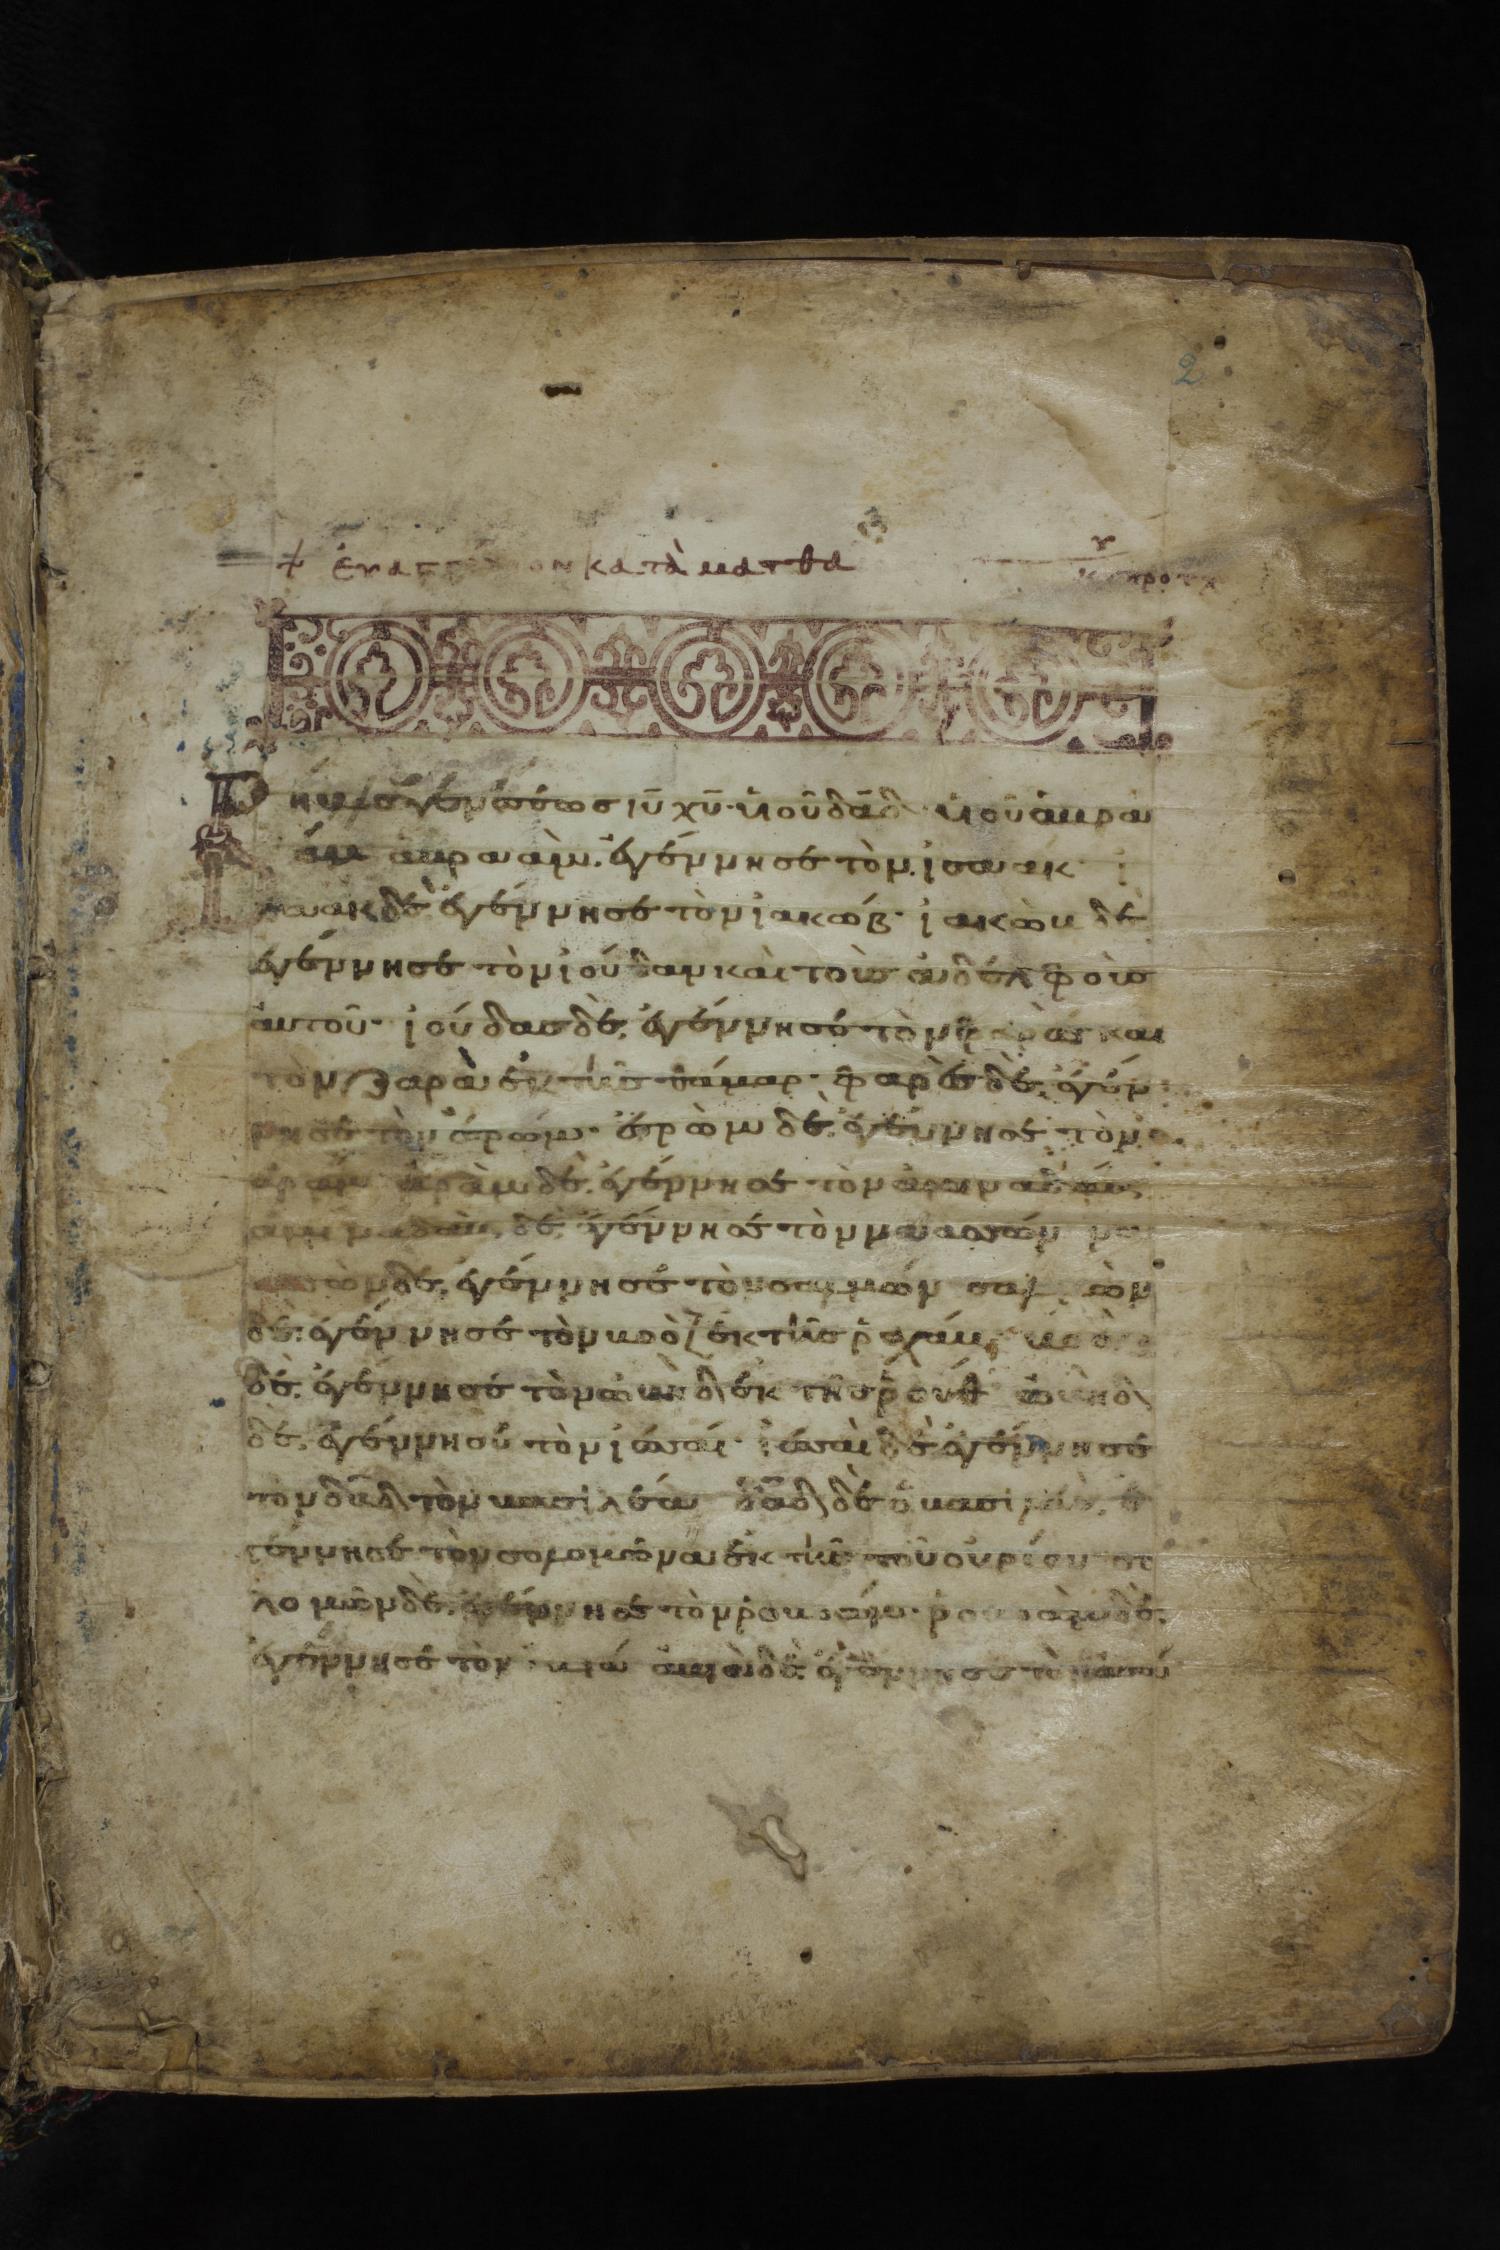 2
+ ἐυαγγέλιον κατὰ ματθα
κυ προ τ χ
Βίβλος γενέσεως ιῦ χῦ· ὑιοῦ δᾱδ ὑιοῦ ἀβρα
άμ ἀβραὰμ. ἐγέννησε τὸν ἰσαακ
ἰσαὰκ δὲ ἐγέννησε τὸν ἰακώβ· ἰακὼβ δὲ
ἐγέννησε τὸν ἰούδαν καὶ τοὺσ ἀδελφοὺσ
ἀυτοῦ· ἰούδασ δὲ, ἐγέννησε τὸν φαρὲσ και
τὸν ζαρὰ ἐκ τῆσ θάμαρ· φαρὲσ δὲ, ἐγέν
νησε τὸν ἐσρώμ· ἐσρὼμ δὲ, ἐγέννησε τὸν
ἀράμ ἀρὰμ δὲ, ἐγέννησε τὸν ἀμιναδάμ,
ἀμιναδὰμ, δὲ, ἐγέννησε τὸν ναασσών να
ασσὼν δὲ, ἐγέννησε τὸν σαλμών σαλμὼν
δὲ, ἐγέννησε τὸν βοὸζ ἐκ τῆσ ῥαχάμ, βοὸζ
δὲ, ἐγέννησε τὸν ὠβὴδ ἐκ τῆσ ῥούθ ὠβὴδ
δὲ, ἐγέννησε τὸν ἰεσσαί· ἰεσσαὶ δὲ ἐγέννησε
τὸν δᾱδ τὸν βασιλέα δᾱδ δὲ ὁ βασιλεὺς, ἐ
γέννησε τὸν σολομῶνα ἐκ τῆσ τοῦ οὐρίου σο
λομῶν δὲ, ἐγέννησε τὸν ῥοβοάμ· ῥοβοὰμ δὲ,
ἐγέννησε τὸν ἀβιά ἀβιὰ δὲ, ἐγέννησε τὸν ἀσά